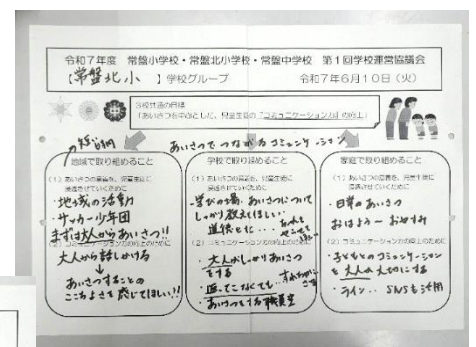 令和7年度 常盤小学校・常盤北小学校・常盤中学校 第1回学校運営協議会
【常盤北小 】学校グループ 令和7年6月10日(火)
3校共通の目標
「あいさつを中心とした、児童生徒の『コミュニケーション力』の向上」
あいさつでつながるコミュニケーション
地域で取り組めること
(1)あいさつの意義を、児童生徒に
浸透させていくために
・地域の活動
・サッカー少年団
まずは大人からあいさつ!!
(2)コミュニケーション力の向上のために
大人から話しかける
あいさつすることの
ここちよさを感じてほしい!!
学校で取り組めること
(1)あいさつの意義を、児童生徒に
浸透させていくために
・学びの場、あいさつについて
しっかり教えてほしい
道徳などに…
(2)コミュニケーション力の向上のために
・大人がしっかりあいさつ
をする
・返ってこなくても…
あいさつをする
家庭で取り組めること
(1)あいさつの意義を、児童生徒に
浸透させていくために
・日常のあいさつ
おはよう〜おやすみ
(2)コミュニケーション力の向上のために
・子どもとのコミュニケーション
を大人が大切にする
・ライン… SNSも活用